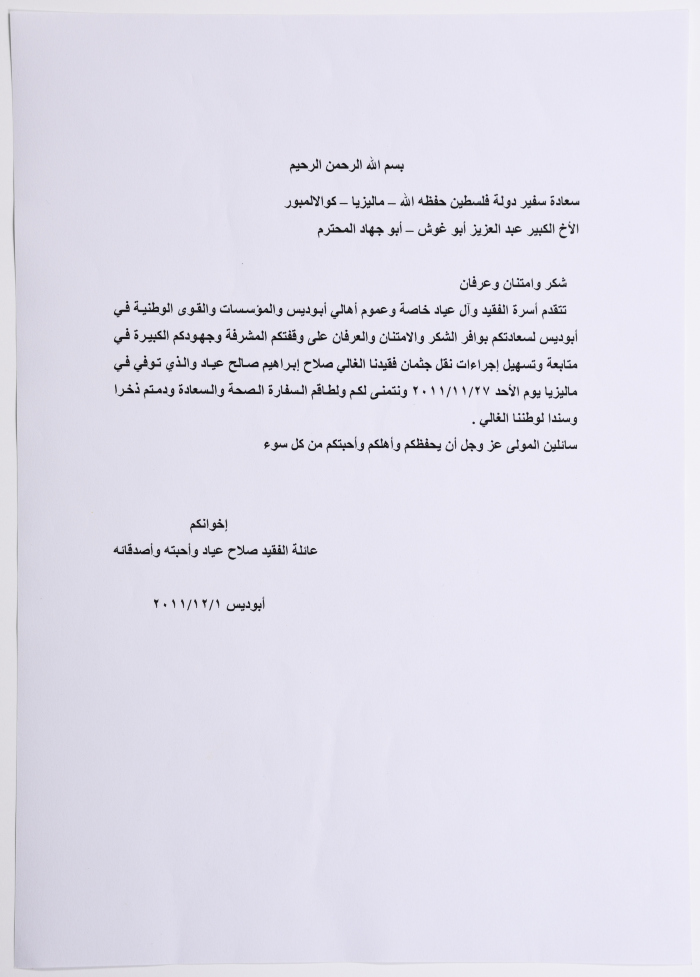 بسم الله الرحمن الرحيم
سعادة سفير دولة فلسطين حفظه الله – ماليزيا – كوالالمبور
الأخ الكبير عبد العزيز أبو غوش – أبو جهاد المحترم
شكر وامتنان وعرفان
تتقدم أسرة الفقيد وآل عياد خاصة وعموم أهالي أبوديس والمؤسسات والقوى الوطنية في
أبوديس لسعادتكم بوافر الشكر والامتنان والعرفان على وقفتكم المشرفة وجهودكم الكبيرة في
متابعة وتسهيل إجراءات نقل جثمان فقيدنا الغالي صلاح إبراهيم صالح عياد والذي توفي في
ماليزيا يوم الأحد ٢٠١١/١١/٢٧ ونتمنى لكم ولطاقم السفارة الصحة والسعادة ودمتم ذخرا
وسندا لوطننا الغالي .
سائلين المولى عز وجل أن يحفظكم وأهلكم وأحبتكم من كل سوء
إخوانكم
عائلة الفقيد صلاح عياد وأحبته وأصدقائه
أبوديس ٢٠١١/١٢/١